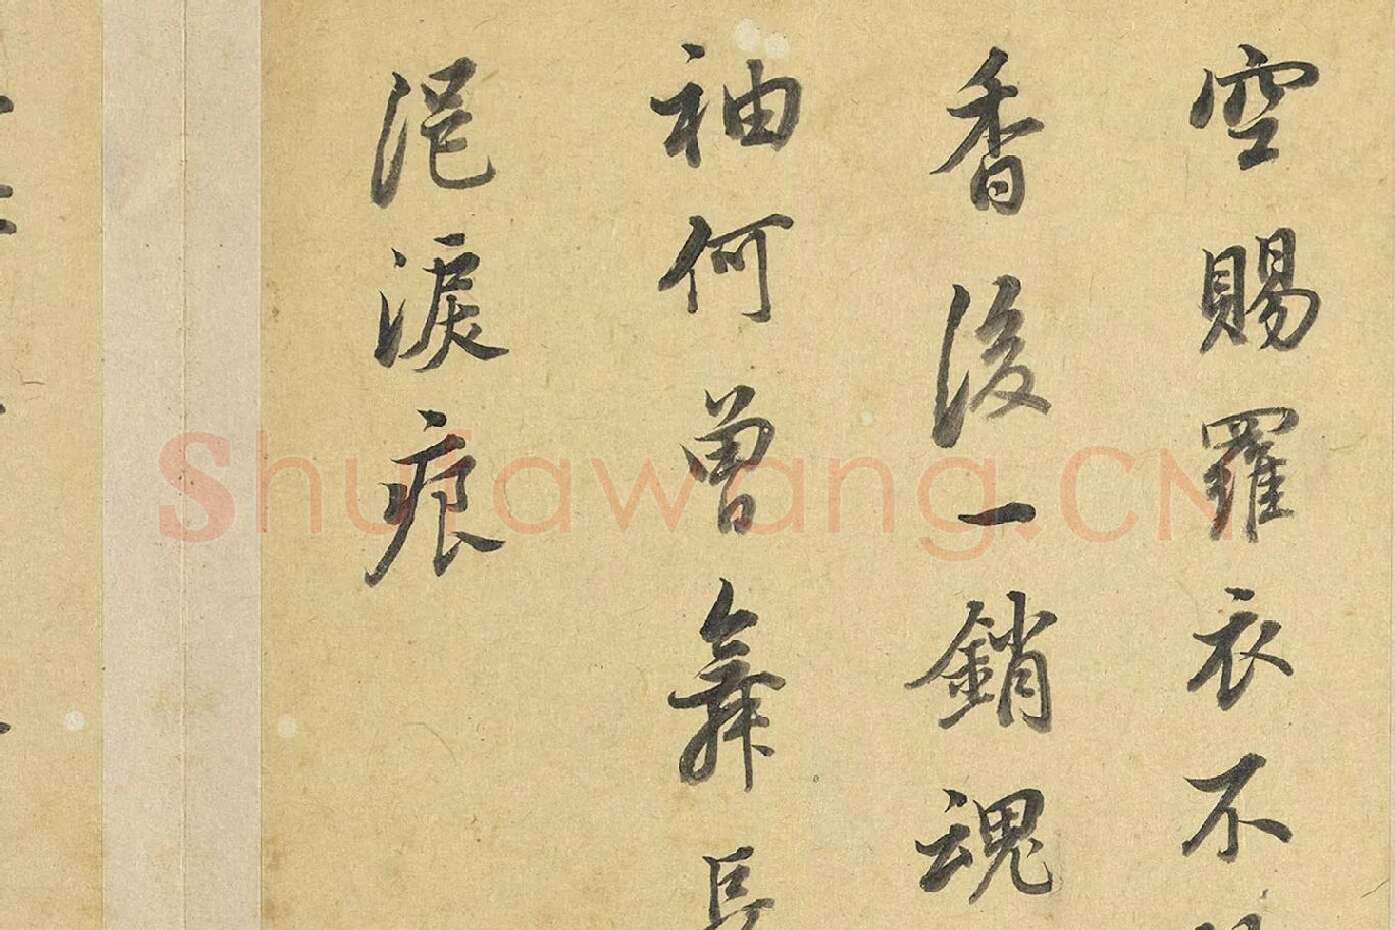 空賜羅衣不
香後一銷魂
袖何曾舞
浥淚痕
Shufawang.CN